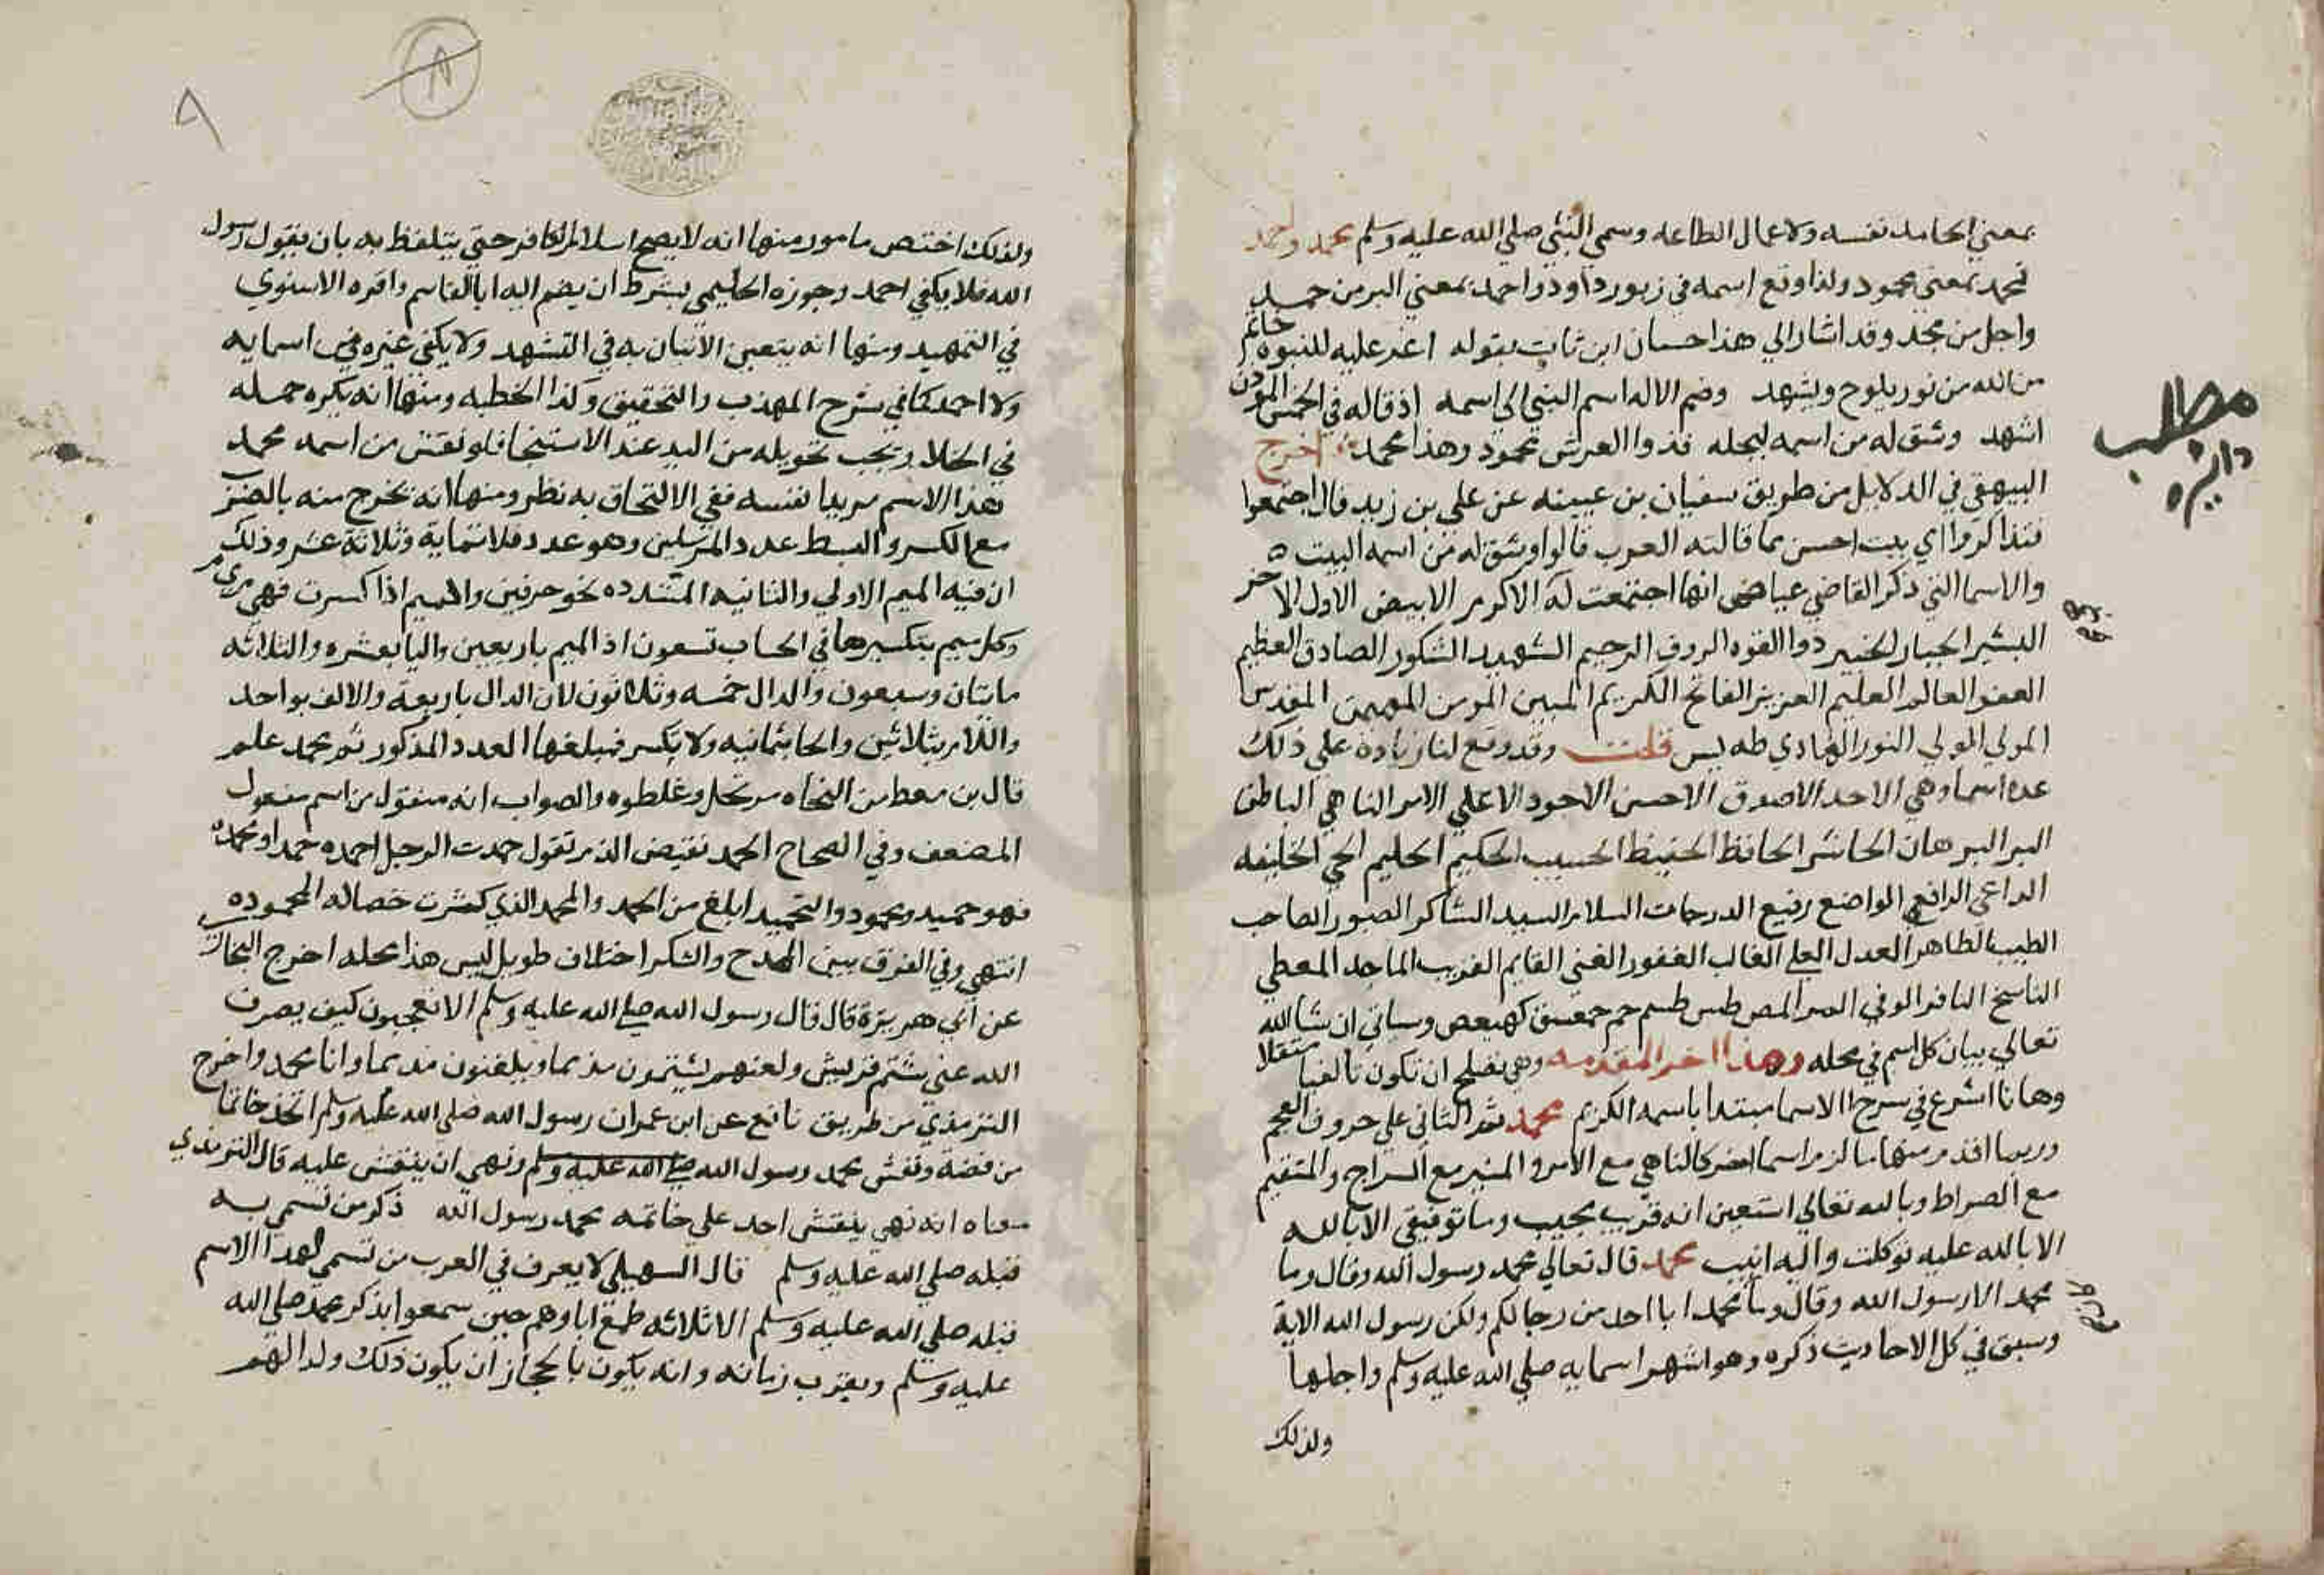 بمعني الحامد نفسه ولاعمال الطاعه وسمي النبي صلي الله عليه وسلم محمد واحمد
فمحمد بمعني محمود ولذا وقع اسمه في زبور داوود واحمد بمعني البر من حمد
واجل من مجد وقد اشار الي هذا حسان ابن ثابت بقوله اغر عليه للنبوه خاتم
من الله من نور يلوح ويشهد وضم الاله اسم النبي الي اسمه اذ قال في الخمس الموذن
اشهد وشق له من اسمه ليجله فذوا العرش محمود وهذا محمد اخرج
البيهقي في الدلايل من طريق سفيان بن عيينه عن علي بن زيد قال اجتمعوا
فتذاكروا اي بيت احسن مما قالته العرب قالوا وشق له من اسمه البيت
والاسما التي ذكر القاضي عياض انها اجتمعت له الاكرم الابيض الاول الاخر
البشير الجبار الخبير ذوا القوه الروف الرحيم الشهيد الشكور الصادق العظيم
العفو العالم العليم العزيز الفاتح الكريم المبين المومن المهيمن المقدس
المولي الولي النور الهادي طه يس قلت وقد وقع لنا زياده علي ذلك
عده اسما وهي الاحد الاصدق الاحسن الاجود الاعلي الامر الناهي الباطن
البر البرهان الحاشر الحافظ الحفيظ الحسيب الحكيم الحليم الحي الخليفه
الداعي الرافع الواضع رفيع الدرجات السلام السيد الشاكر الصبور الصاحب
الطيب الطاهر العدل العلي الغالب الغفور الغني القايم القريب الماجد المعطي
الناسخ الناشر الوفي الم المر المص طس طسم حم حمعسق كهيعص وسياتي ان شا الله
تعالي بيان كل اسم في محله وهذا اخر المقدمه وهي تصلح ان تكون تاليفا مستقلا
وها انا اشرع في شرح الاسما مبتدا باسمه الكريم محمد ثم الثاني علي حروف المعجم
وربما اقدم منها ما لزم اسما اخر كالناهي مع الامر والمنير مع السراج والمستقيم
مع الصراط وبالله تعالي استعين انه قريب مجيب وما توفيقي الا بالله
الا بالله عليه توكلت واليه انيب محمد قال تعالي محمد رسول الله وقال وما
محمد الا رسول الله وقال وما محمد ابا احد من رجالكم ولكن رسول الله الاية
وسبق في كل الاحاديث ذكره وهو اشهر اسمايه صلي الله عليه وسلم واجلها
ولذلك
مطلب
دايره
٩
ولذلك اختص بامور منها انه لا يصح اسلام الكافر حتي يتلفظ به بان يقول رسول
الله فلا يكفي احمد وجوزه الحليمي بشرط ان يضم اليه ابا القاسم واقره الاسنوي
في التمهيد ومنها انه يتعين الاتيان به في التشهد ولا يكفي غيره من اسمايه
ولا احمد كما في شرح المهذب والتحقيق وكذا الخطبه ومنها انه يكره حمله
في الخلا ويجب تحويله من اليد عند الاستنجا فلو نقش من اسمه محمد
هذا الاسم مريدا نفسه ففي الالتحاق به نظر ومنها انه يخرج منه بالضرب
مع الكسر والبسط عدد المرسلين وهو عدد ثلاثماية وثلاثة عشر وذلك
ان فيه الميم الاولي والثانيه المشدده نحو حرفين والميم اذا كسرت فهي م ي م
وكل ميم بتكسيرها في الحساب تسعون اذ الميم باربعين واليا بعشره والثلاثه
مايتان وسبعون والدال خمسه وثلاثون لان الدال باربعة والالف بواحد
واللام بثلاثين والحا بثمانيه ولا يكسر فمبلغها العدد المذكور ثم محمد علم
قال بن معط من النحاه مرتجل وغلطوه والصواب انه منقول من اسم مفعول
المضعف وفي الصحاح الحمد نقيض الذم تقول حمدت الرجل احمده حمدا ومحمده
فهو حميد ومحمود والتحميد ابلغ من الحمد والمحمد الذي كثرت خصاله المحموده
انتهي وفي الفرق بين المدح والشكر اختلاف طويل ليس هذا محله اخرج البخاري
عن ابي هريرة قال قال رسول الله صلي الله عليه وسلم الا تعجبون كيف يصرف
الله عني شتم قريش ولعنهم يشتمون مذمما ويلعنون مذمما وانا محمد واخرج
الترمذي من طريق نافع عن ابن عمر ان رسول الله صلي الله عليه وسلم اتخذ خاتما
من فضة ونقش محمد رسول الله صلي الله عليه وسلم ونهي ان ينقش عليه قال الترمذي
معناه انه نهي ينقش احد علي خاتمه محمد رسول الله ذكر من تسمي به
قبله صلي الله عليه وسلم قال السهيلي لا يعرف في العرب من تسمي بهذا الاسم
قبله صلي الله عليه وسلم الا ثلاثه طمع اباوهم حين سمعوا بذكر محمد صلي الله
عليه وسلم وبقرب زمانه وانه يكون بالحجاز ان يكون ذلك ولدا لهم